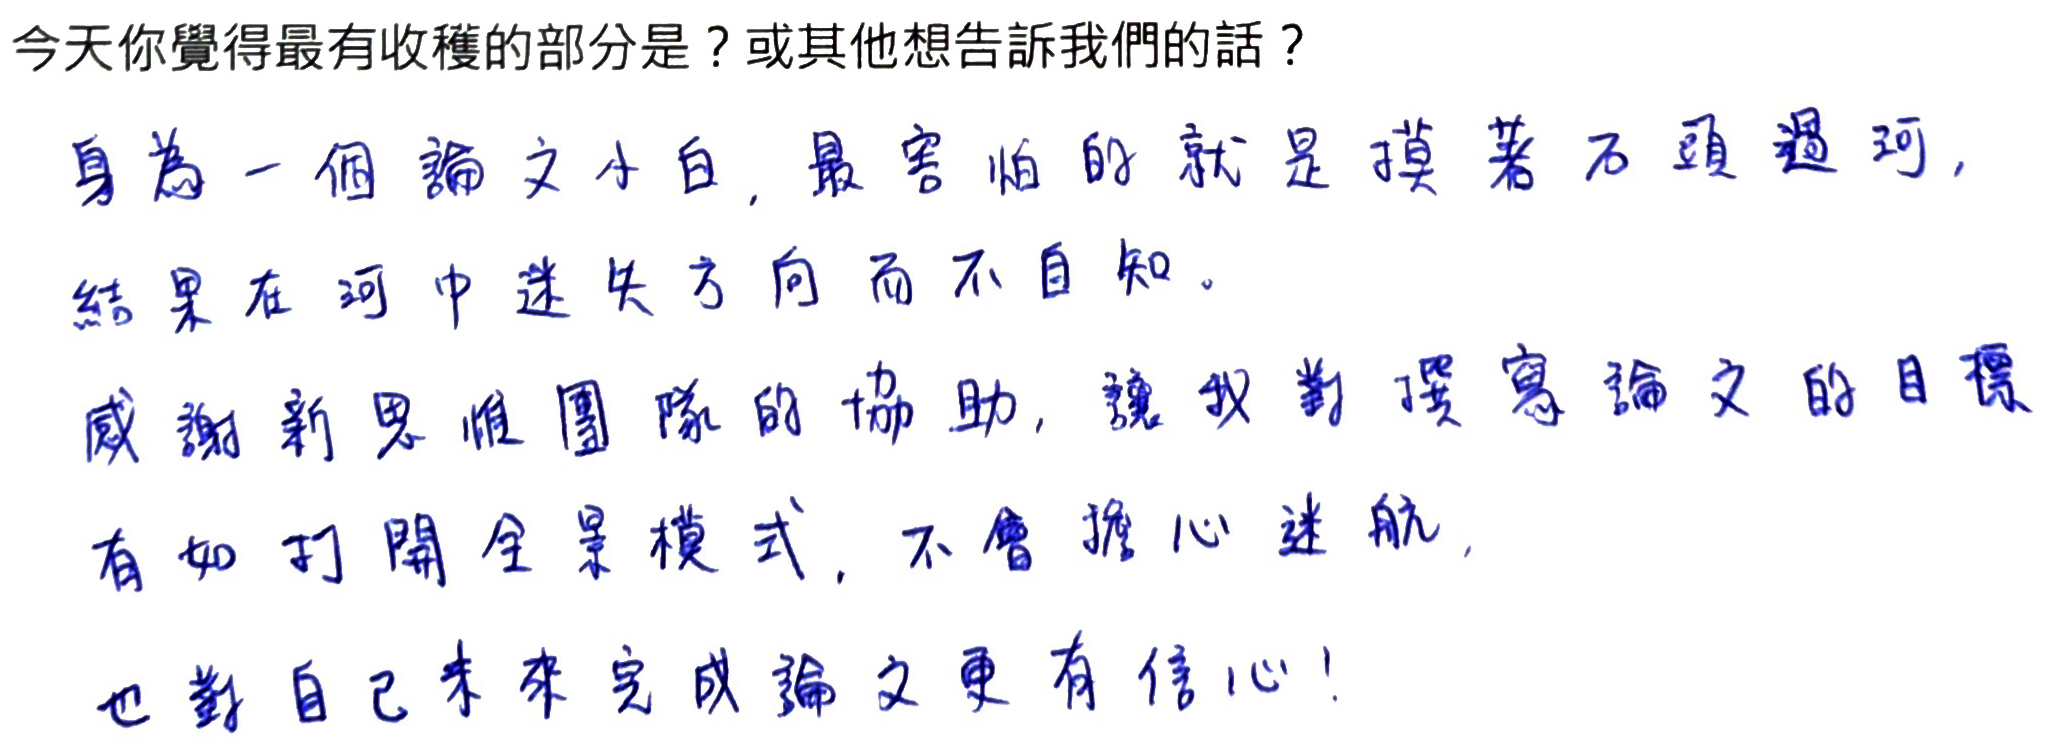 今天你覺得最有收穫的部分是？或其他想告訴我們的話？
身為一個論文小白，最害怕的就是摸著石頭過河，
結果在河中迷失方向而不自知。
感謝新思惟團隊的協助，讓我對撰寫論文的目標
有如打開全景模式，不會擔心迷航，
也對自己未來完成論文更有信心！